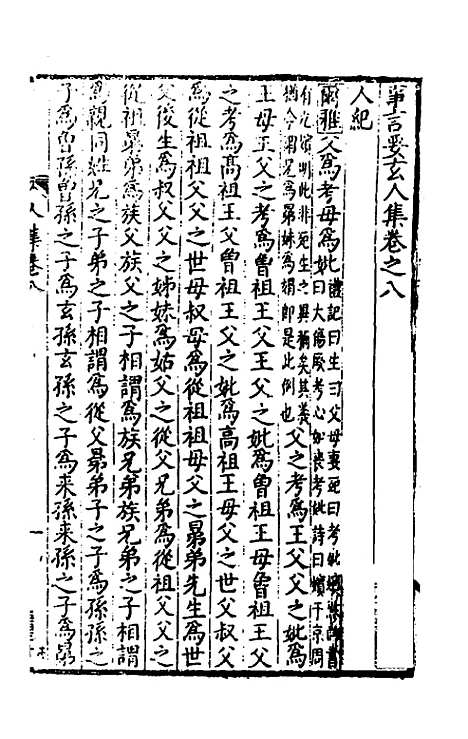 事言要玄人集卷之八
人紀
爾雅父爲考母爲妣禮記曰生曰父母妻死曰考妣嬪
曰大傷厥考心如喪考妣詩曰嬪于京周
有明此非死生之異稱矣其義
猶今謂兄爲晜妹爲媦即是此例也父之考爲王父父之妣爲
王母王父之考爲曾祖王父王父之妣爲曾祖王母曾祖王父
之考爲高祖王父曾祖王父之妣爲高祖王母父之世父叔父
爲從祖祖父父之世母叔母爲從祖祖母父之晜弟先生爲世
父後生爲叔父父之姊妹爲姑父之從父兄弟爲從祖父父之
從祖晜弟爲族父族父之子相謂爲族兄弟族兄弟之子相謂
爲親同姓兄之子弟之子相謂爲從父晜弟子之子爲孫孫之
子爲曾孫曾孫之子爲玄孫玄孫之子爲来孫来孫之子爲晜
人集卷八
一